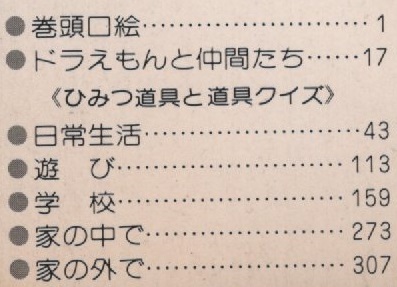 ●巻頭口絵……………………1
●ドラえもんと仲間たち……17
《ひみつ道具と道具クイズ》
●日常生活……………………43
●遊　び……………………113
●学　校……………………159
●家の中で…………………273
●家の外で…………………307